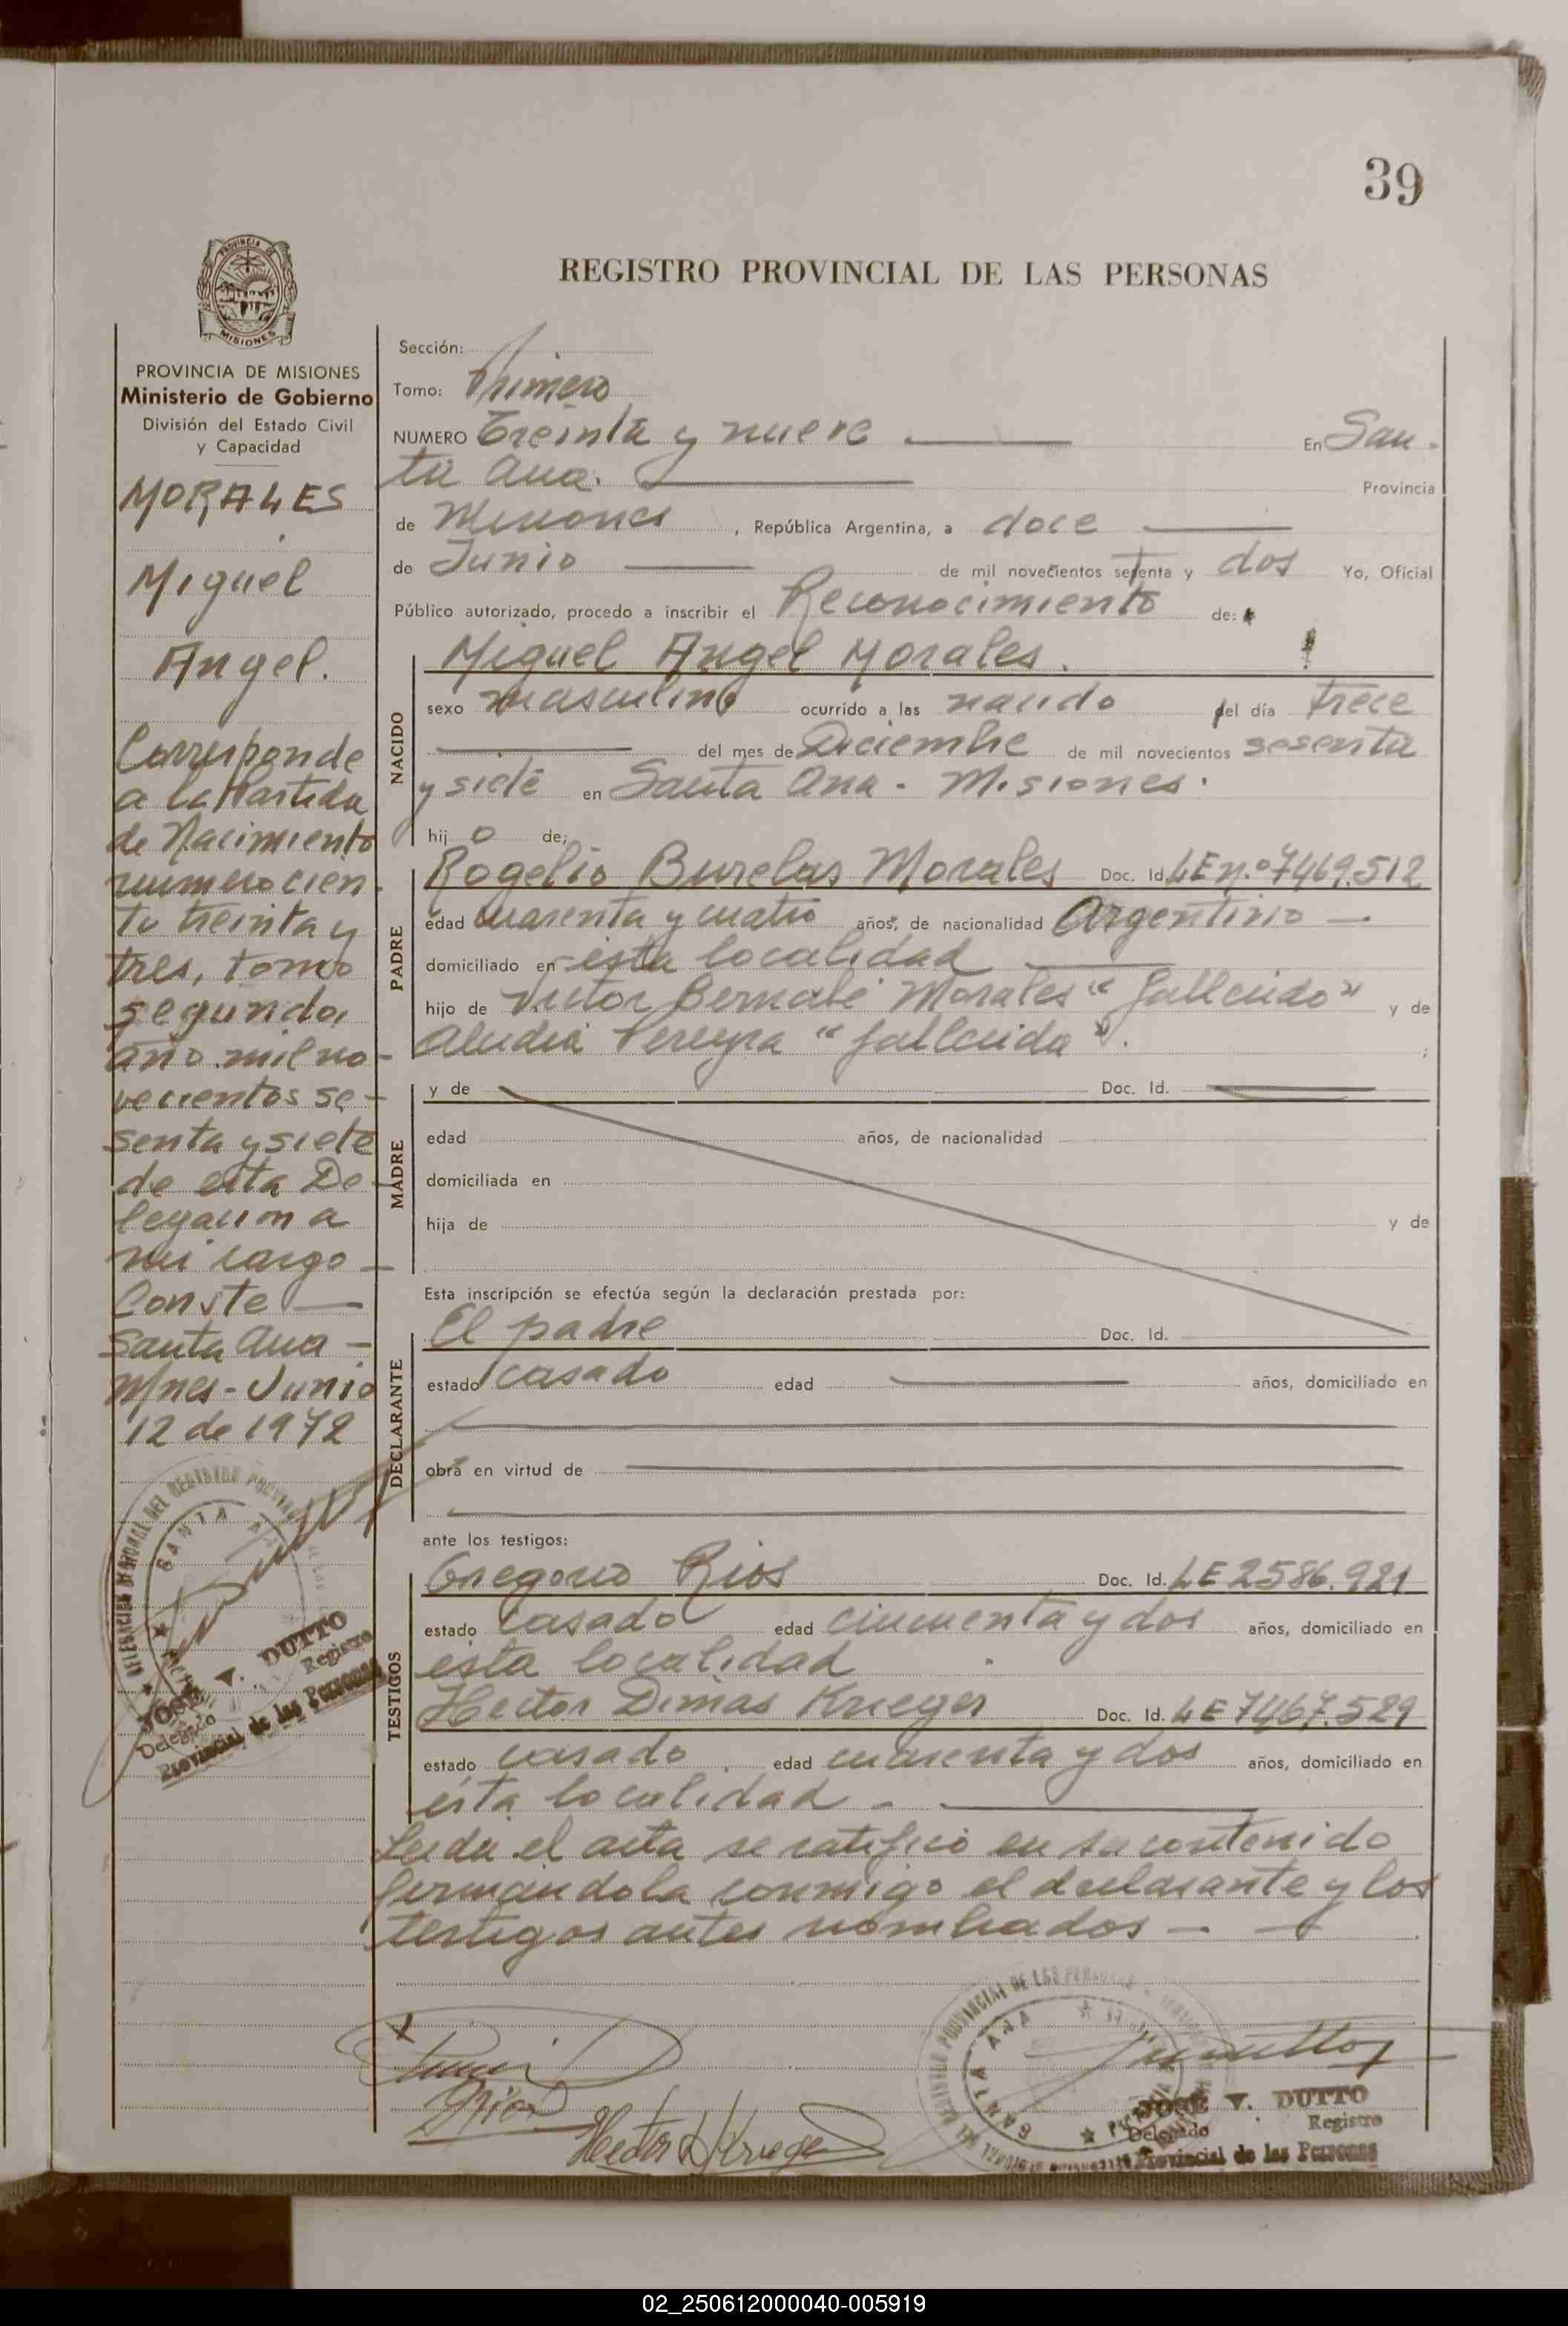 39
REGISTRO PROVINCIAL DE LAS PERSONAS
PROVINCIA DE MISIONES
Ministerio de Gobierno
División del Estado Civil
y Capacidad
MORALES
Miguel
Angel.
Corresponde
a la Partida
de Nacimiento
numero cien-
to treinta y
tres, tomo
segundo,
año mil no-
vecientos se-
senta y siete
de esta De-
legacion a
mi cargo
Conste
Santa Ana -
Mnes - Junio
12 de 1972
SANTA ANA
JOSE V. DUTTO
Delegado Registro
Provincial de las Personas
Sección:
Tomo: Primero
NUMERO Treinta y nueve En San-
ta Ana. Provincia
de Misiones, República Argentina, a doce
de Junio de mil novecientos setenta y dos Yo, Oficial
Público autorizado, procedo a inscribir el Reconocimiento de:
Miguel Angel Morales.
NACIDO
sexo masculino ocurrido a las nacido el día trece
del mes de Diciembre de mil novecientos sesenta
y siete en Santa Ana - Misiones.
hij o de;
PADRE
Rogelio Burelas Morales Doc. Id. LE n.º 7469.512
edad cuarenta y cuatro años, de nacionalidad Argentino -
domiciliado en esta localidad
hijo de Victor Bernabé Morales "fallecido" y de
Pereyra "fallecida".
MADRE
y de Doc. Id.
edad años, de nacionalidad
domiciliada en
hija de y de
Esta inscripción se efectúa según la declaración prestada por:
DECLARANTE
El padre Doc. Id.
estado casado edad años, domiciliado en
obra en virtud de
ante los testigos:
TESTIGOS
Gregorio Rios Doc. Id. LE 2586.921
estado casado edad cincuenta y dos años, domiciliado en
esta localidad
Hector Dimas Krieger Doc. Id. LE 7467.529
estado casado edad cuarenta y dos años, domiciliado en
esta localidad -
Leida el acta se ratificó en su contenido
firmandola conmigo el declarante y los
testigos antes nombrados -
GRios
Hector D Krieger
SANTA ANA
JOSE V. DUTTO
Delegado Registro
Provincial de las Personas
02_250612000040-005919